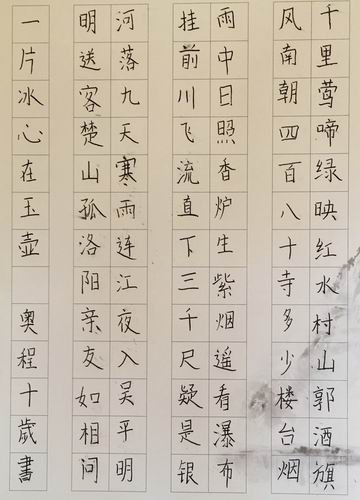 千里莺啼绿映红水村山郭酒旗
风南朝四百八十寺多少楼台烟
雨中日照香炉生紫烟遥看瀑布
挂前川飞流直下三千尺疑是银
河落九天寒雨连江夜入吴平明
明送客楚山孤洛阳亲友如相问
一片冰心在玉壶 奥程十歲書